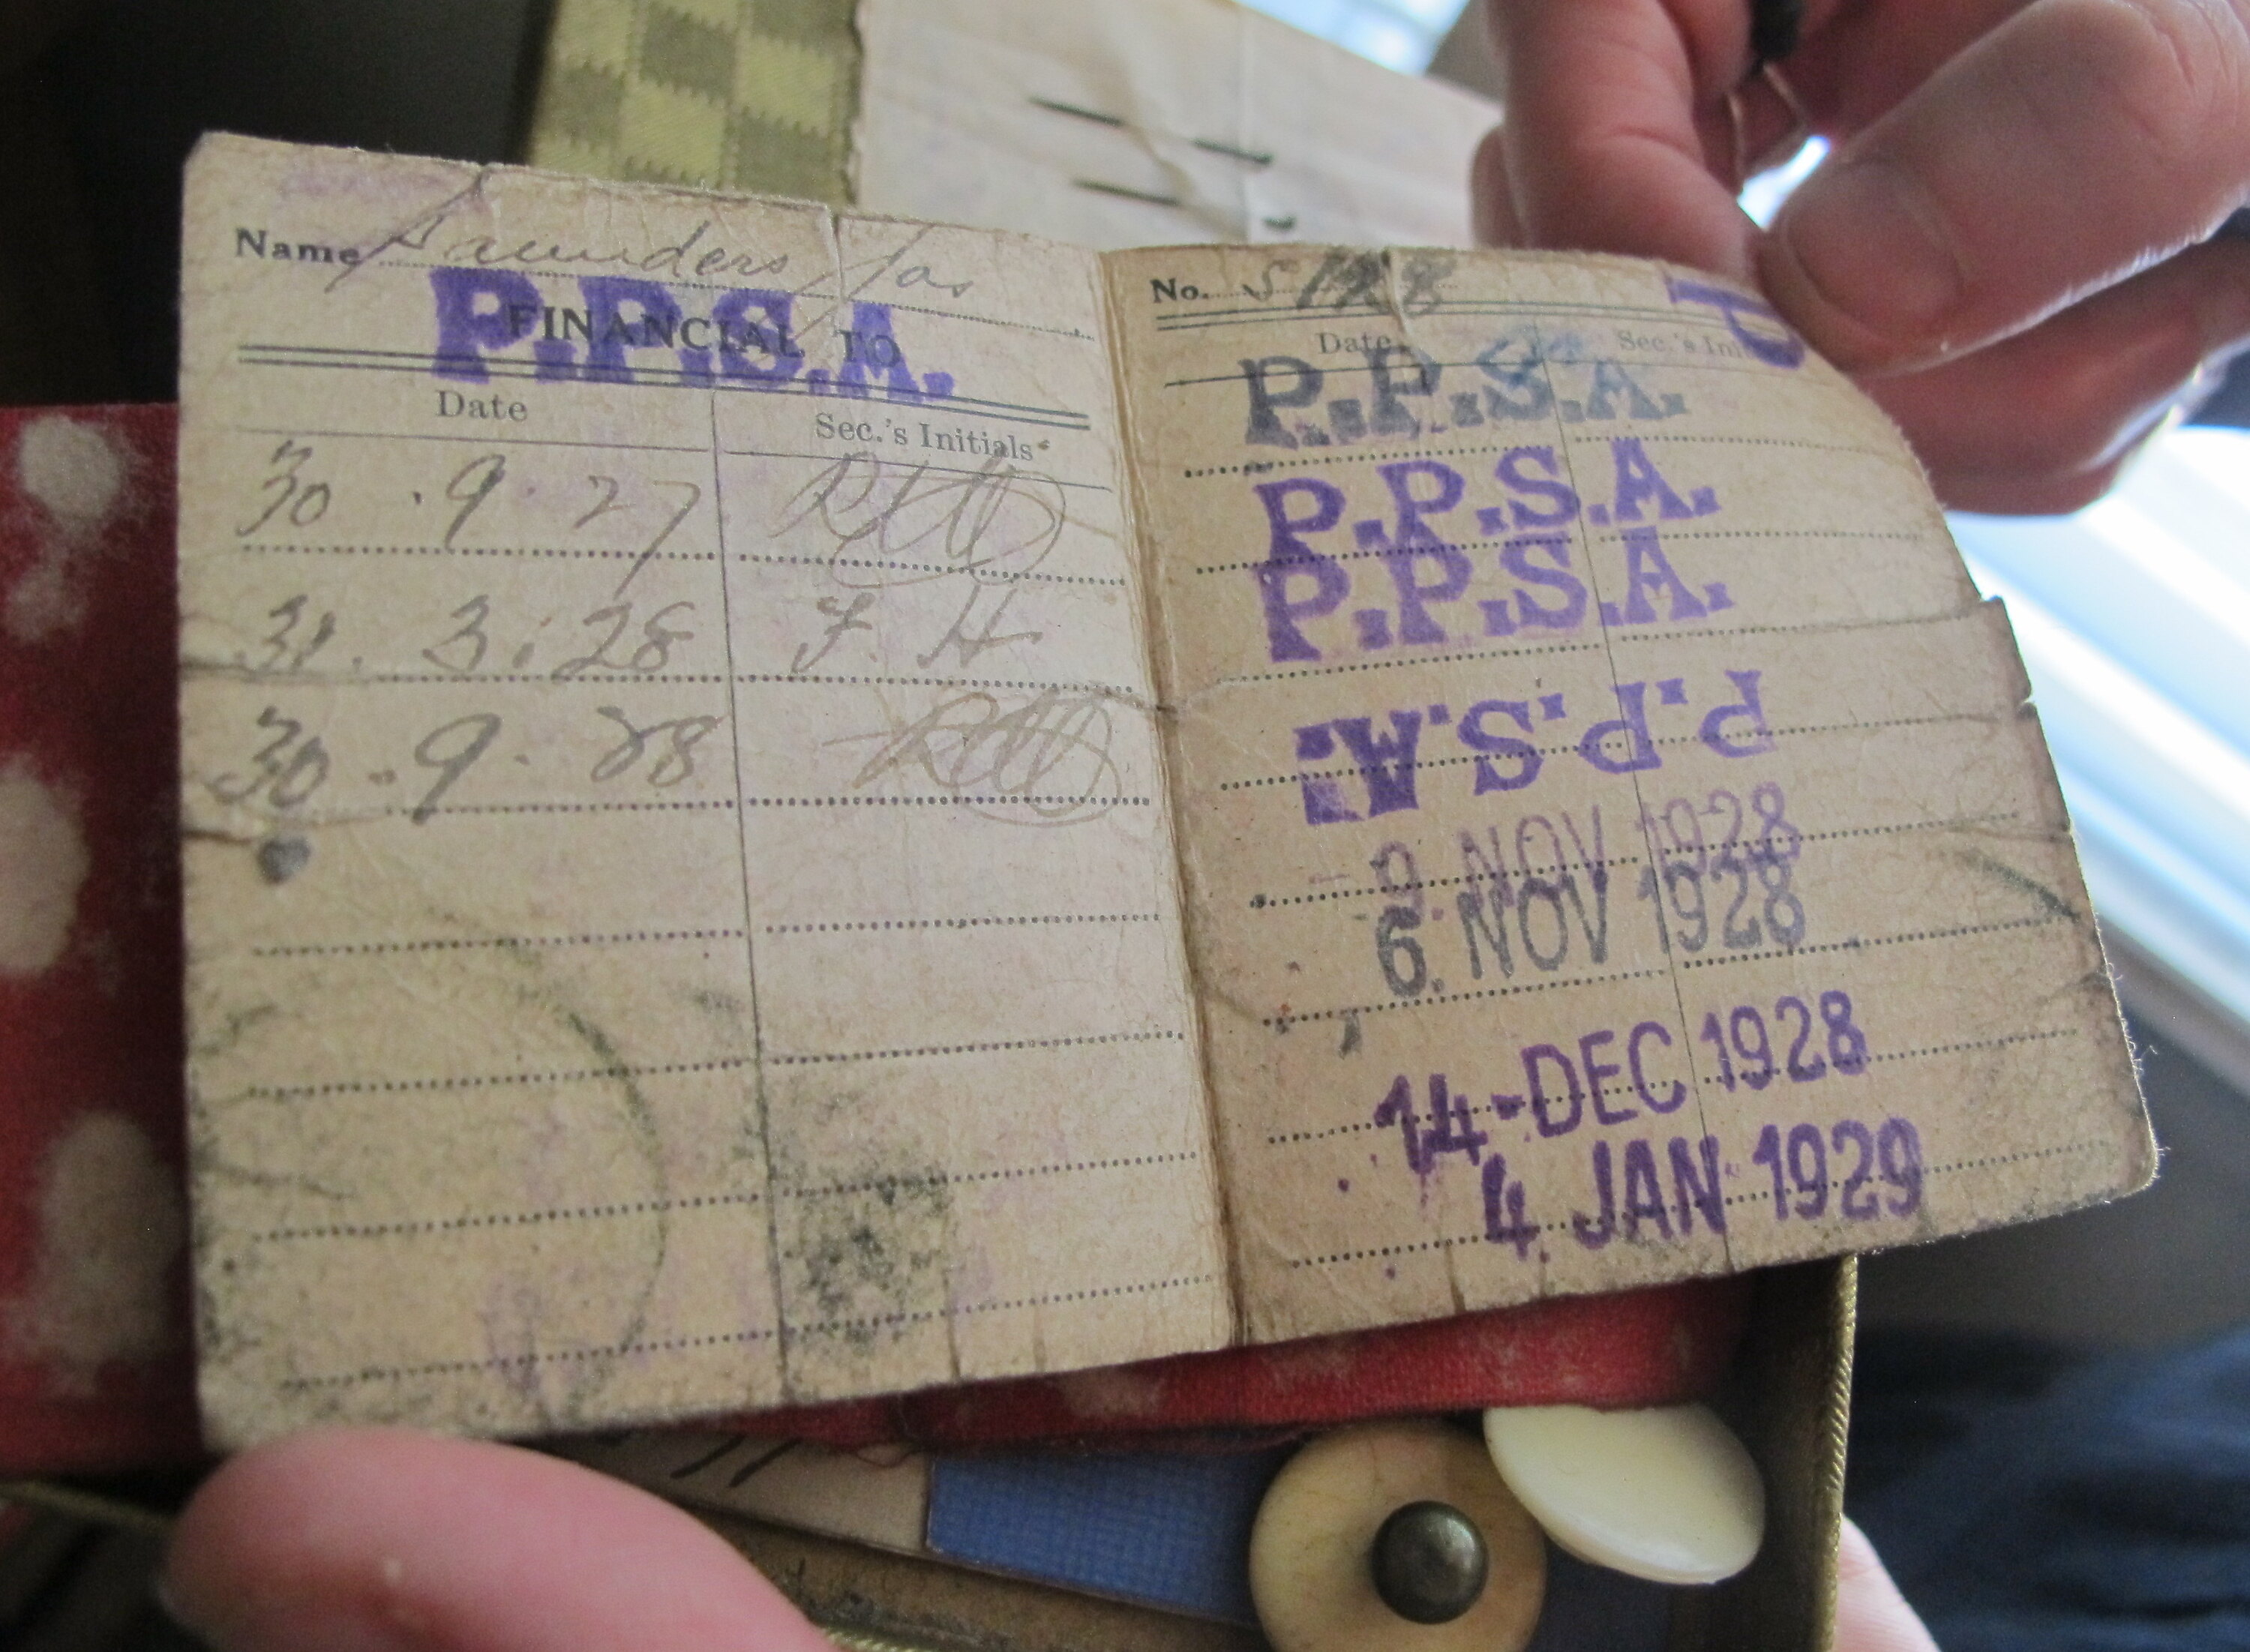 Name Saunders Jas
P.P.S.A.
FINANCIAL TO
Date Sec.'s Initials
30 . 9 . 27
31 . 3 . 28 F. H
30 . 9 . 28
No. S 128
Date Sec.'s Ini
P.P.S.A.
P.P.S.A.
P.P.S.A.
P.P.S.A.
- 9. NOV 1928
6. NOV 1928
14-DEC 1928
4. JAN 1929